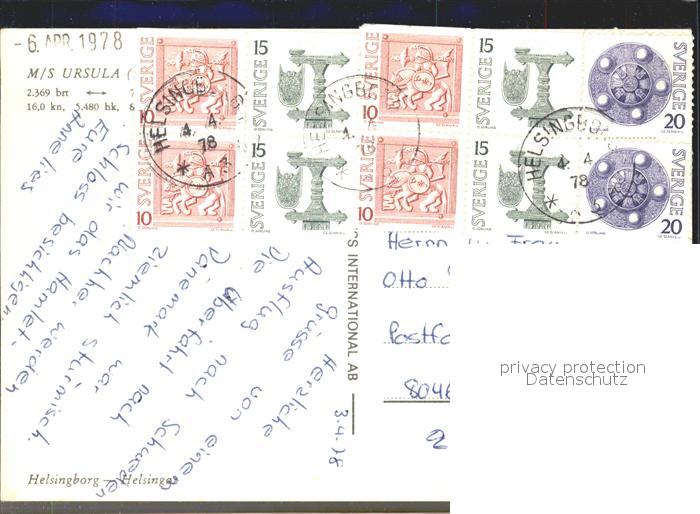 - 6. APR. 1978
M/S URSULA (
2.369 brt
16,0 kn, 5.480 hk, 8
SVERIGE 10
SVERIGE 15
SVERIGE 10
SVERIGE 15
SVERIGE 20
SVERIGE 10
SVERIGE 15
SVERIGE 10
SVERIGE 15
SVERIGE 20
HELSINGB
4. 4
78
HELSINGBO
4. 4
78
3.4.78
Herzliche
Grüsse von einem
Ausflug nach Schweden
Die Überfahrt nach
Dänemark war
ziemlich stürmisch.
Nachher werden
wir das Hamlet-
schloss besichtigen
Eure
Annelies
'S INTERNATIONAL AB
Herrn u. Frau
Otto
Postfa
8046
Helsingborg — Helsingør
privacy protection
Datenschutz